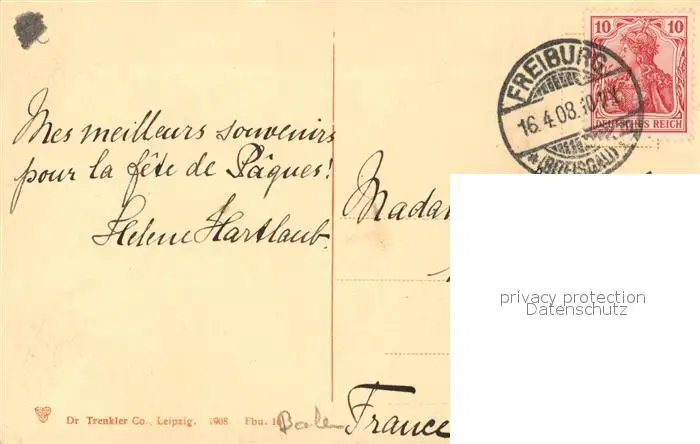 Mes meilleurs souvenirs
pour la fête de Pâques!
Helene Hartlaub.
10 10
DEUTSCHES REICH
FREIBURG
16.4.08.10-11V.
*(BREISGAU)*
Madam
privacy protection
Datenschutz
France
Dr Trenkler Co., Leipzig. 1908. Fbu.
Baden